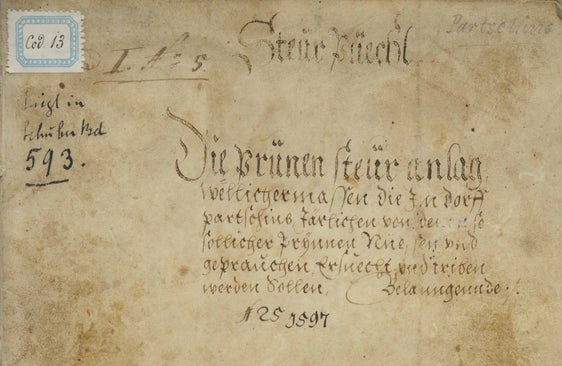 Cod. 13
I. No 5
Steür Püechl
Partschins
ligt in
593.
Die Prünen steür anlag
wellichermassen die In dorff
partschins Järlichen von denen so
söllicher Prynnen Niessen und
geprauchen, Ersuecht und triben
werden Sollen,
N 25 1597